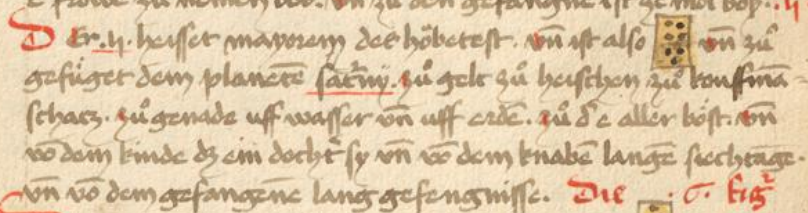 zu den gefangne ist ze mol böß.
Der .ij. heisset mayorem des höbetest. vn̄ ist also vn̄ zů
gefüget dem planetē sat̄ny. zů gelt zů heischen zů kouffmā
schatz. zů genade uff wasser vn̄ uff erdē. zů d'e aller böst. vn̄
vō dem kinde dz ein docht' sy vn̄ vō dem knabē langē siechtāge
vn̄ vō dem gefangenē lang gefengnisse. Die .6. fig'